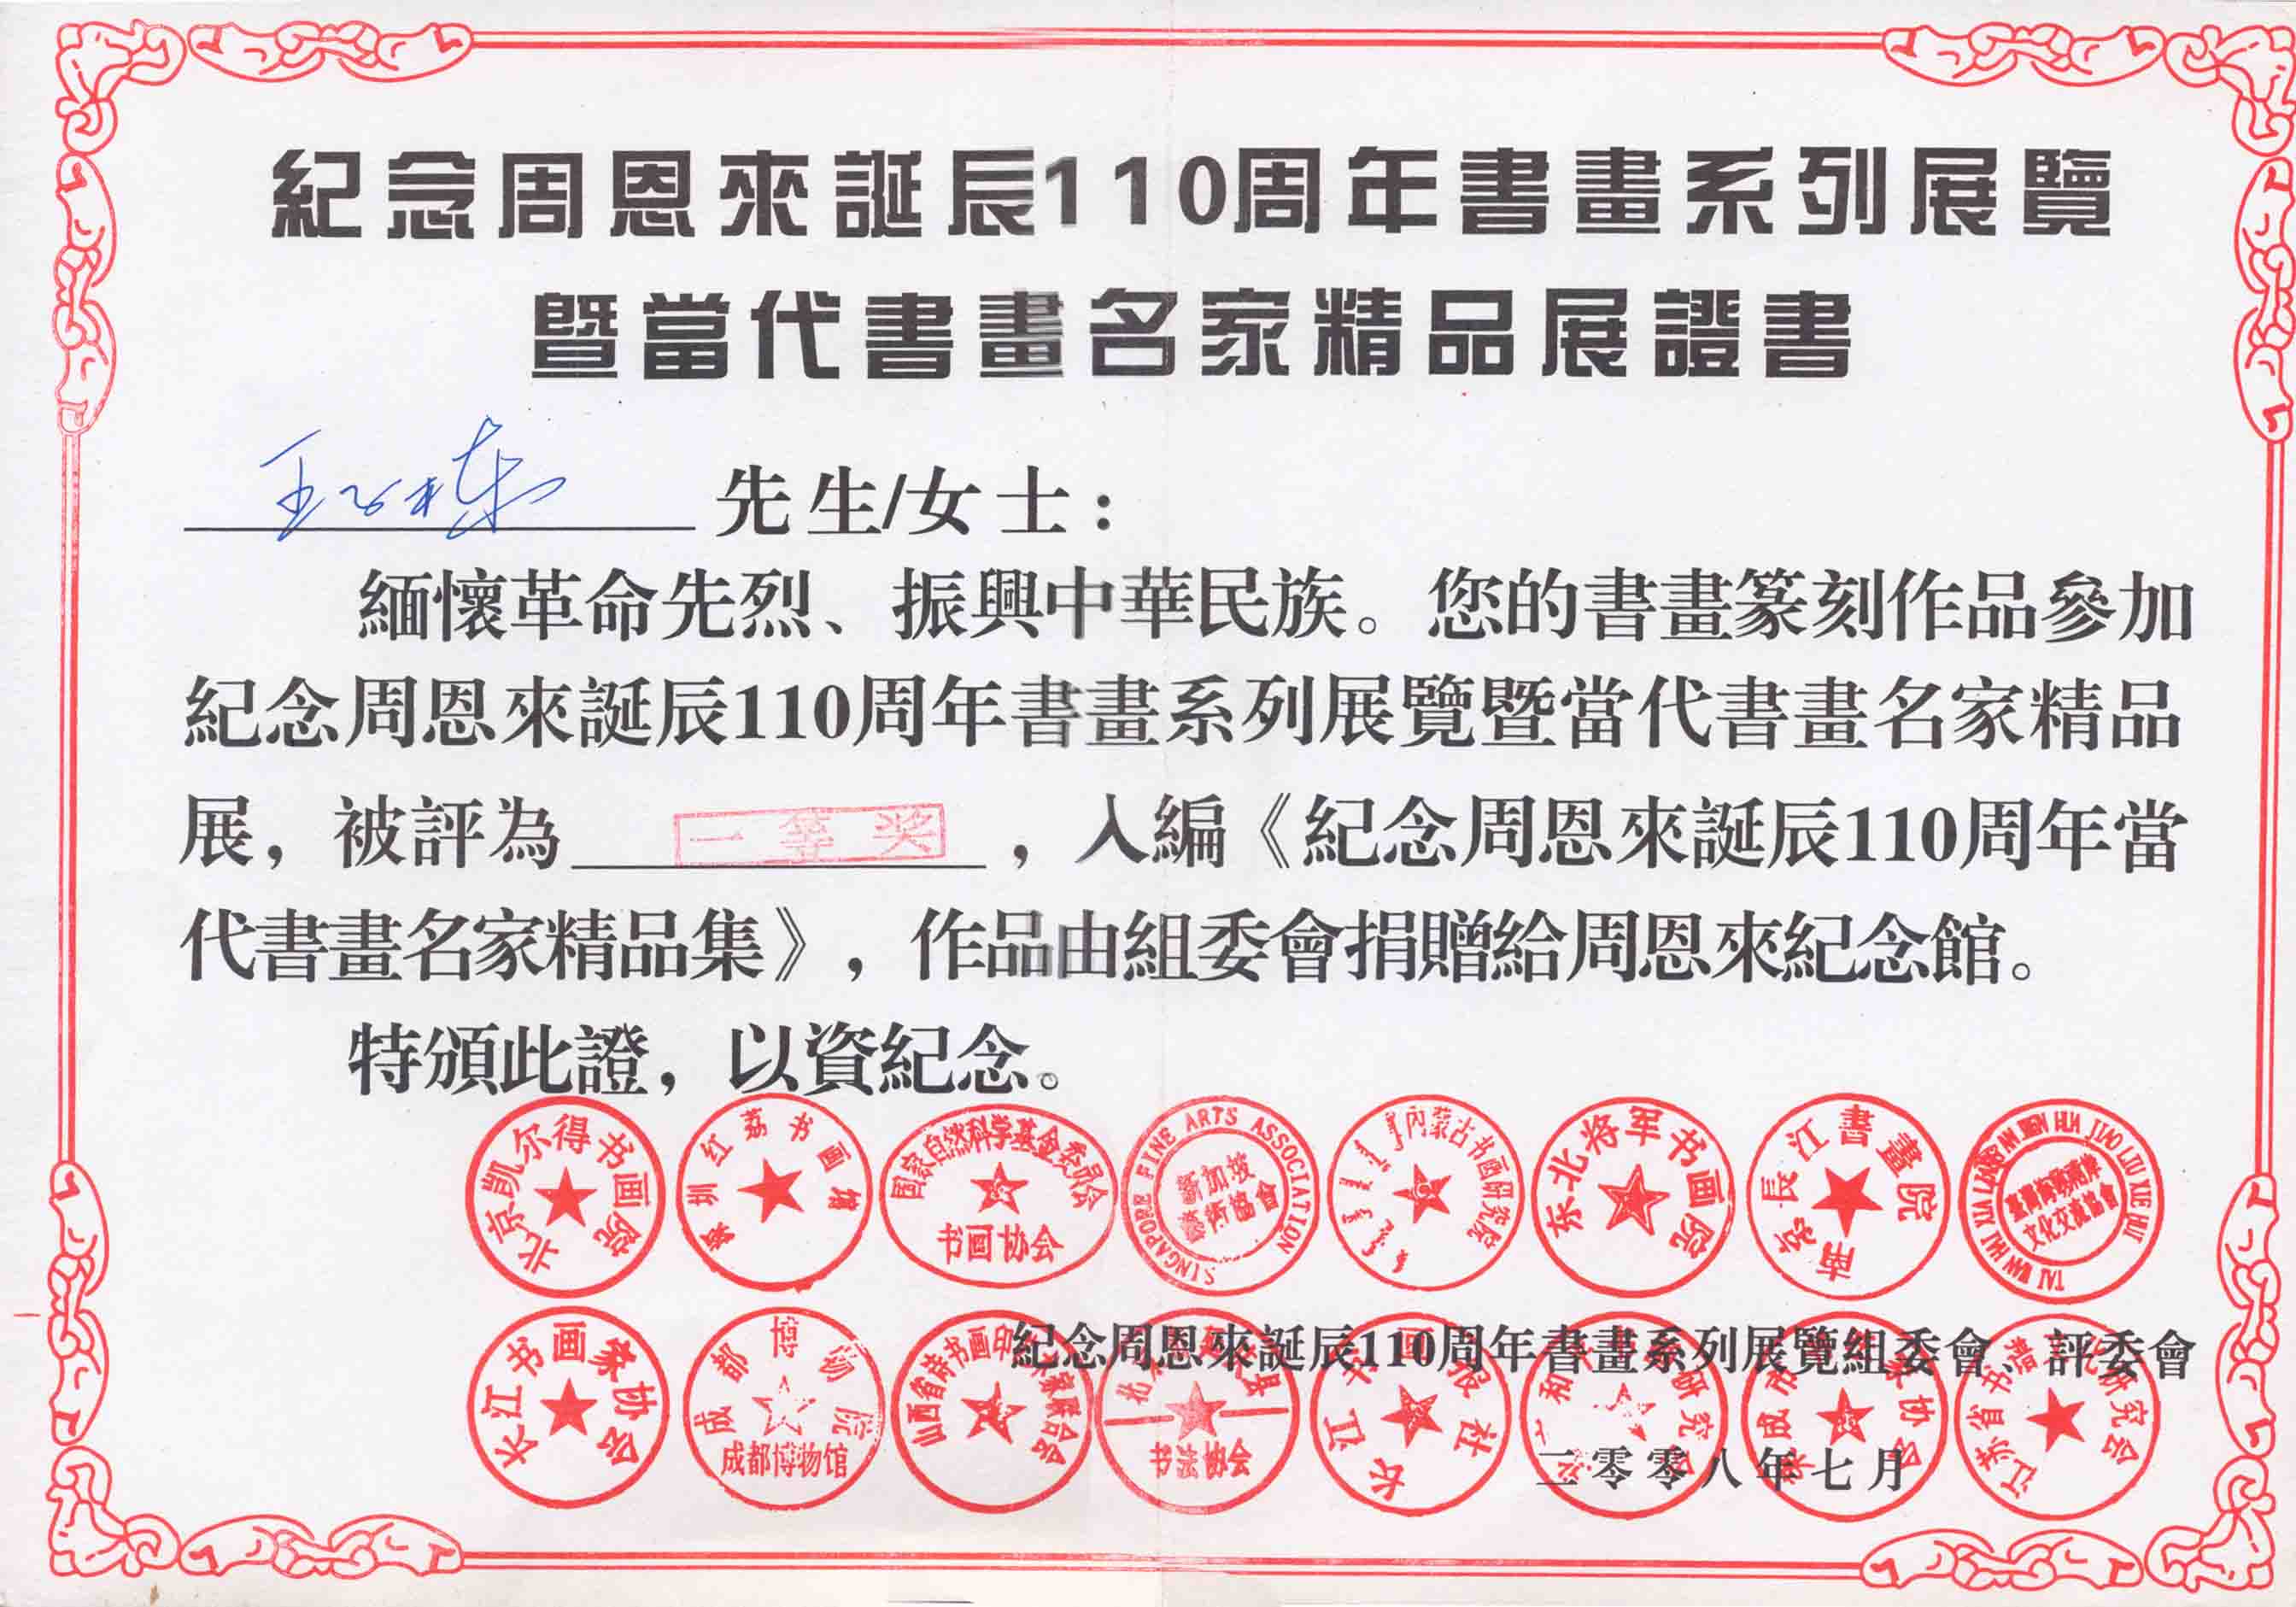 紀念周恩來誕辰110周年書畫系列展覽
暨當代書畫名家精品展證書
先生/女士：
緬懷革命先烈、振興中華民族。您的書畫篆刻作品參加
紀念周恩來誕辰110周年書畫系列展覽暨當代書畫名家精品
展，被評為 一等奖 ，入編《紀念周恩來誕辰110周年當
代書畫名家精品集》，作品由組委會捐贈給周恩來紀念館。
特頒此證，以資紀念。
北京凯尔得书画院
深圳红荔书画馆
国家自然科学基金委员会
书画协会
SINGAPORE FINE ARTS ASSOCIATION
新加坡
藝術協會
内蒙古书画研究院
东北将军书画院
南京長江書畫院
TAI WAN HAI XIA LIANG AN WEN HUA JIAO LIU XIE HUI
臺灣海峽兩岸
文化交流協會
紀念周恩來誕辰110周年書畫系列展覽組委會、評委會
长江书画篆协会
成都博物院
成都博物馆
书法协会
二零零八年七月